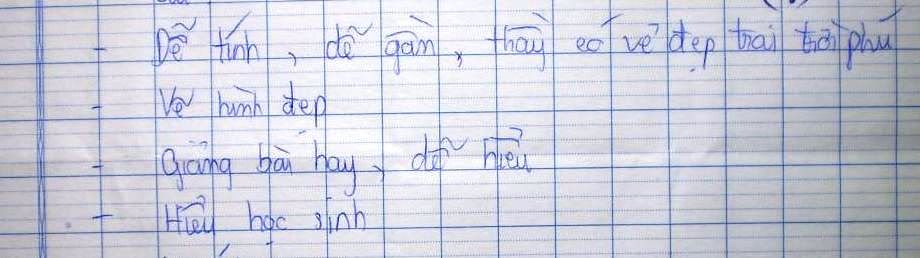 - Dễ tính, dễ gần, thầy có vẻ đẹp trai trời phú
- Vẽ hình đẹp
- Giảng bài hay, dễ hiểu
- Hiểu học sinh